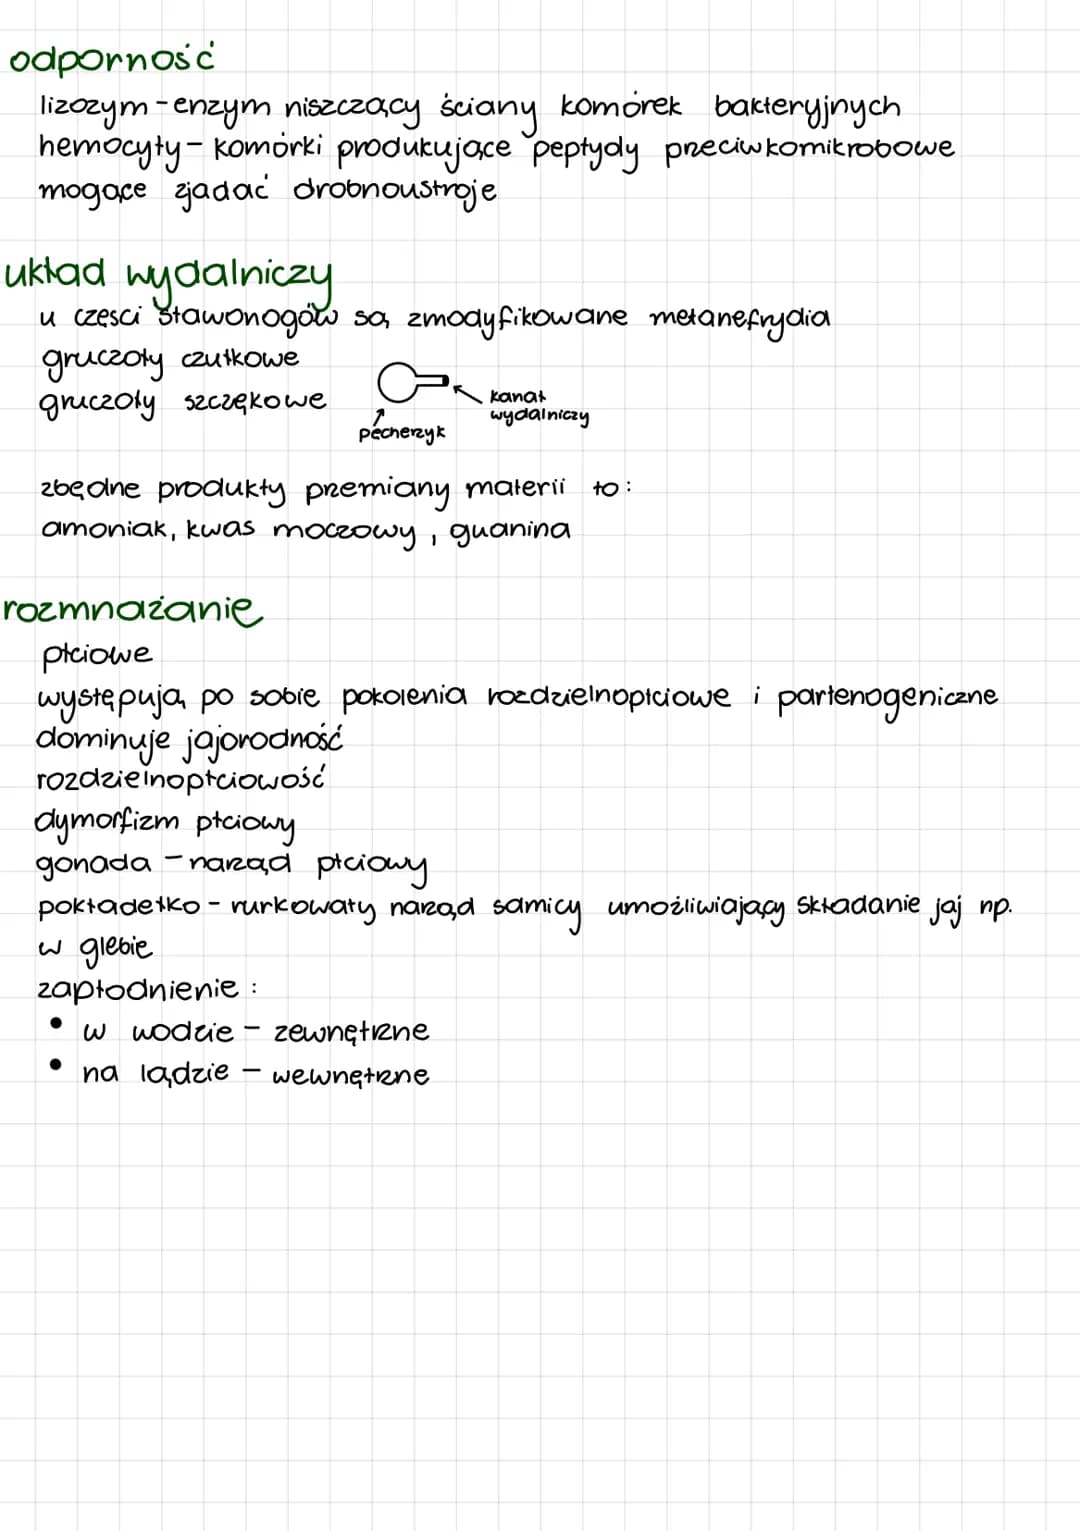 odporność
lizozym - enzym niszczący ściany komórek bakteryjnych
hemocyty - komórki produkujące peptydy przeciwkomikrobowe
mogące zjadać drobnoustroje
układ wydalniczy
u części stawonogów są zmodyfikowane metanefrydia
gruczoły czułkowe
gruczoły szczękowe
kanał
wydalniczy
pęcherzyk
zbędne produkty przemiany materii to:
amoniak, kwas moczowy, guanina
rozmnażanie
płciowe
występują po sobie pokolenia rozdzielnopłciowe i partenogeniczne
dominuje jajorodność
rozdzielnopłciowość
dymorfizm płciowy
gonada - narząd płciowy
pokładełko - rurkowaty narząd samicy umożliwiający składanie jaj np.
w glebie
zapłodnienie:
• w wodzie - zewnętrzne
• na lądzie - wewnętrzne